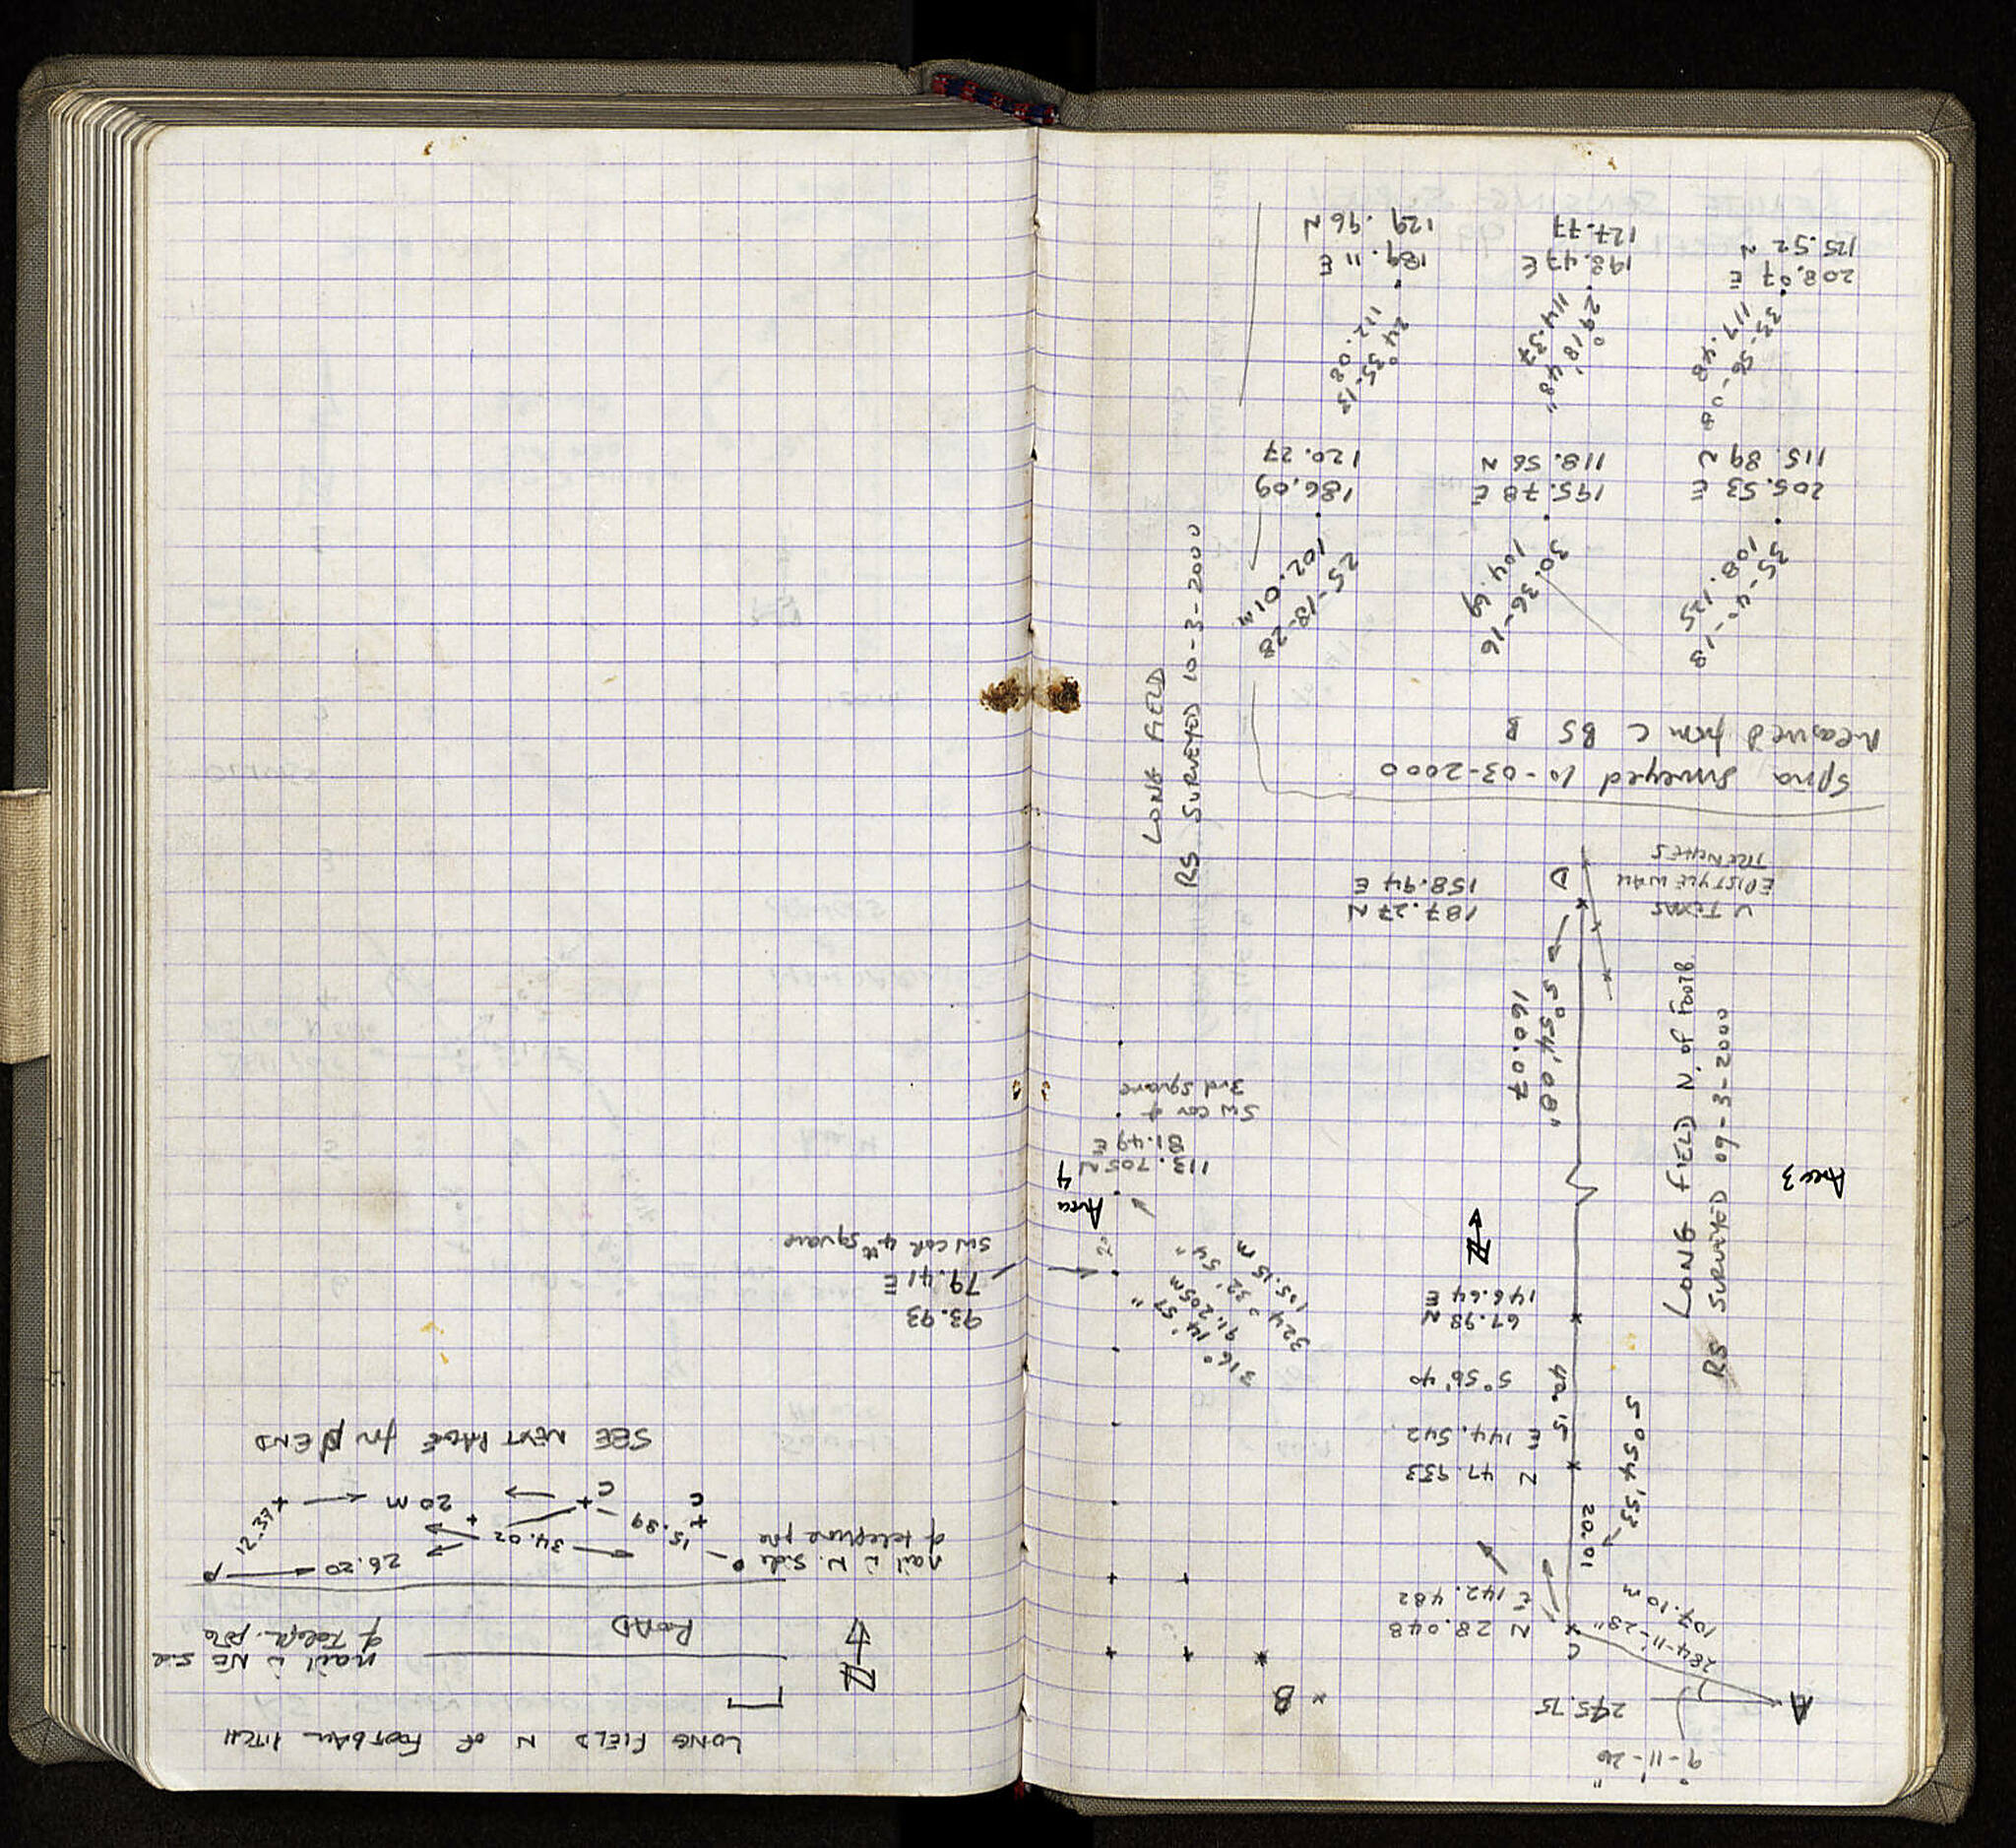 9°-11'-20"
A
245.75
B
284-11'-28"
107.10 m
C
N 28.048
E 142.482
20.01
5°54'53"
N 47.933
E 144.542
40.15
5°56'40
67.98 N
146.64 E
N
316° 14' 57"
91.205m
324° 32' 54"
105.15 m
Area 3
Area 4
113.705 N
81.49 E
SW cor of
3rd square
LONG FIELD N. of FOOTB
RS SURVEYED 09-3-2000
5°54'08"
160.07
187.27 N
158.94 E
D
V TEXAS
EPISTYLE WALL
TRENCHES
Spina Surveyed 10-03-2000
Measured from C BS B
LONG FIELD
RS SURVEYED 10-3-2000
35-40-18
108.125
205.53 E
115.89 N
30.36-16
104.69
195.78 E
118.56 N
25-18-28
102.01 m
186.09
120.27
33-56-08
117.48
208.07 E
125.52 N
29° 18' 48"
114.37
198.47 E
127.77
24°35-13
112.08
189.11 E
129.96 N
LONG FIELD N OF FOOTBALL PITCH
N
nail in NE side
of teleph. pole
ROAD
nail in N. side
of telephone pole
15.89
34.02
26.20
P
12.37
C
C
20 m
SEE NEXT PAGE for P END
93.93
79.41 E
SW cor 4th square